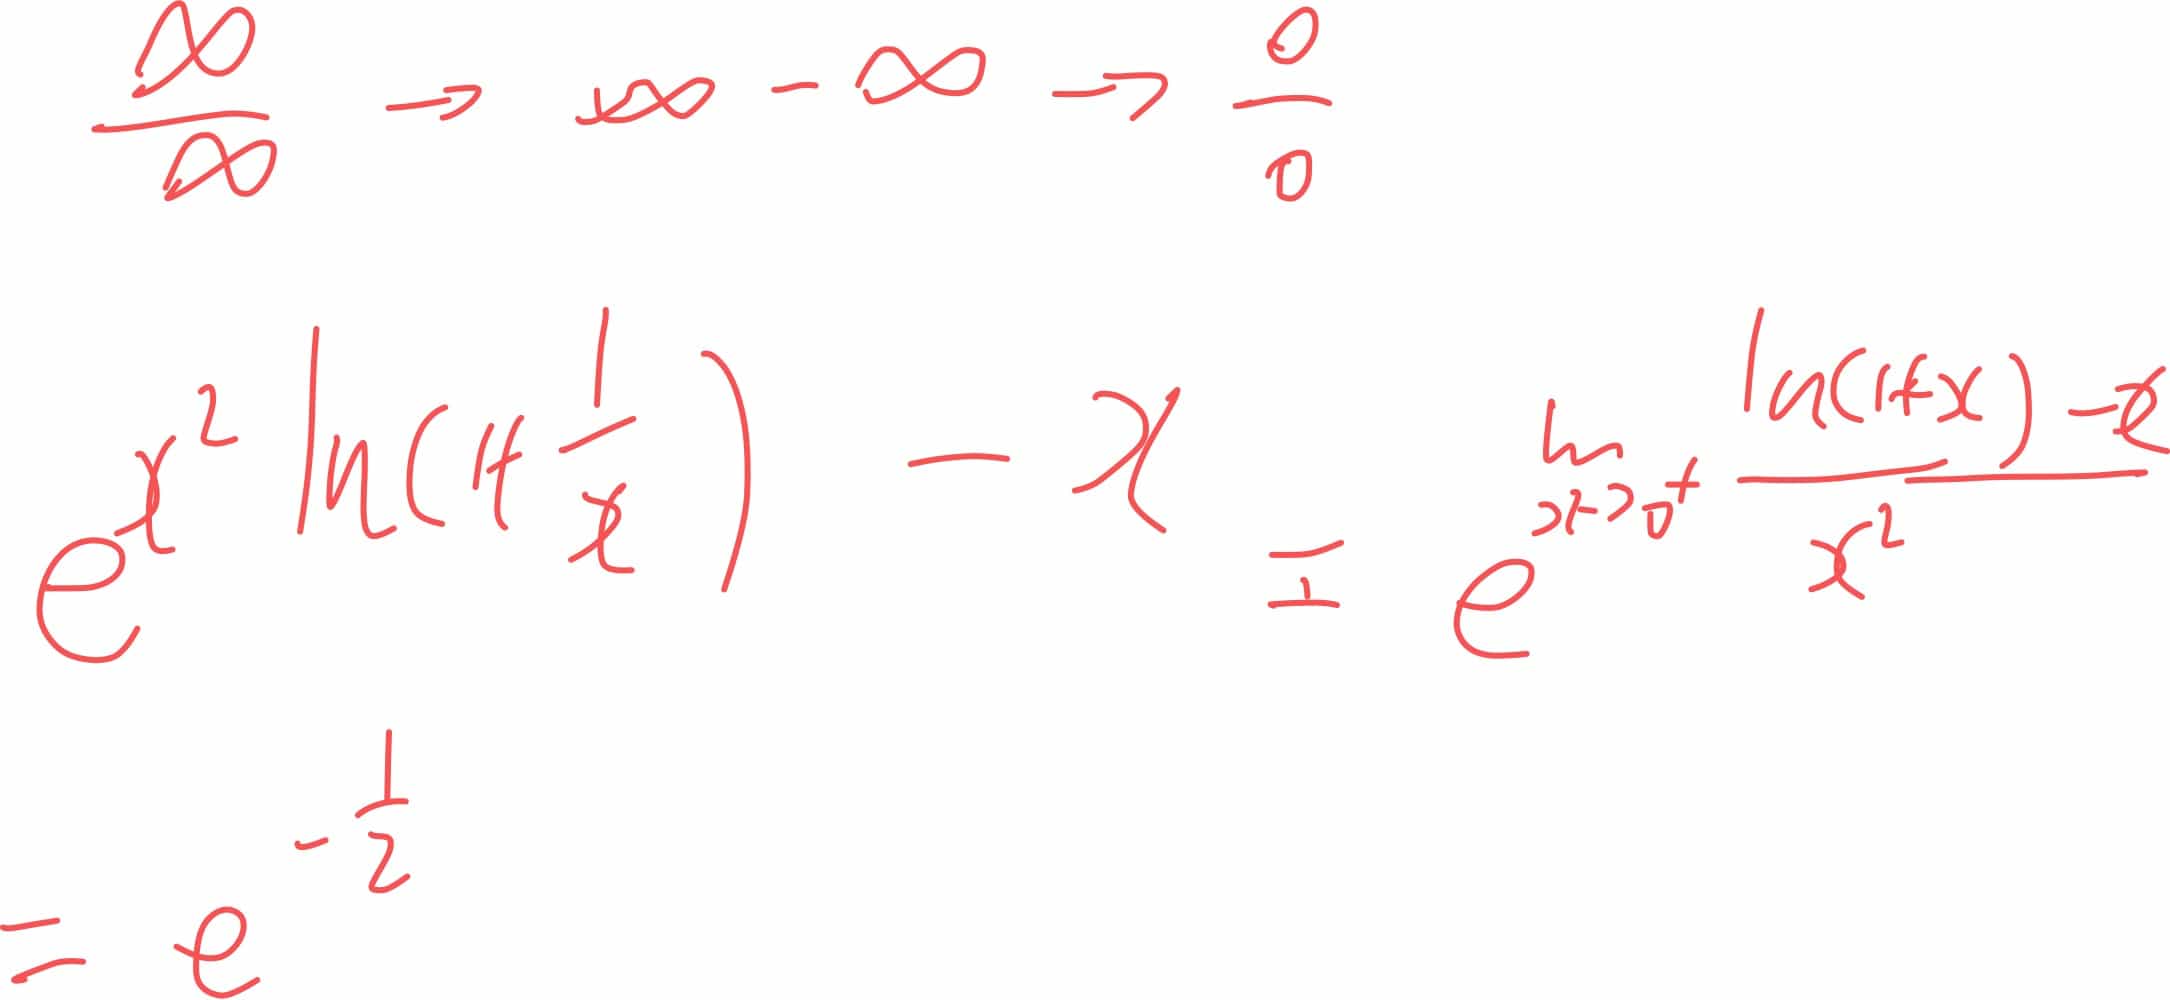 ∞/∞ → ∞ - ∞ → 0/0
e^{x^2 ln(1+1/x) - x} = e^{lim_{x->0^+} (ln(1+x)-x)/x^2}
= e^{-1/2}